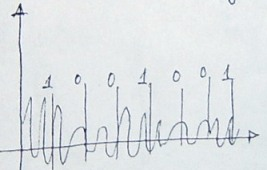 1 0 0 1 0 0 1